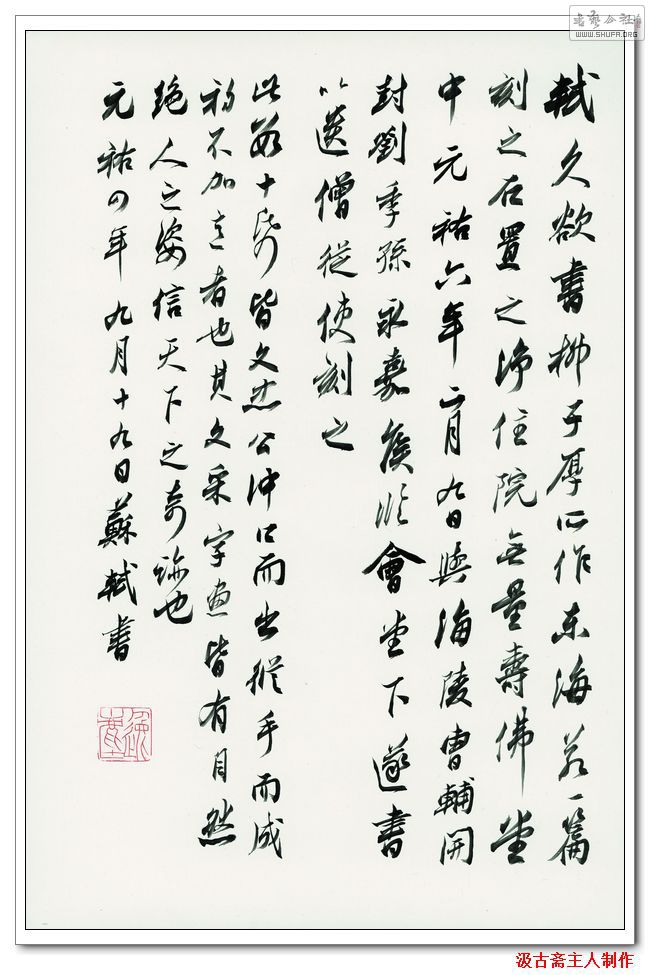 軾久欲書柳子厚所作東海若一篇
刻之石置之淨住院無量壽佛堂
中元祐六年二月九日與海陵曹輔開
封劉季孫永嘉侯臨會堂下遂書
以遺僧從使刻之
此數十紙皆文忠公沖口而出縱手而成
初不加意者也其文采字畫皆有自然
絕人之姿信天下之奇跡也
元祐四年九月十九日蘇軾書
書藝公社
WWW.SHUFA.ORG
汲古斋主人制作